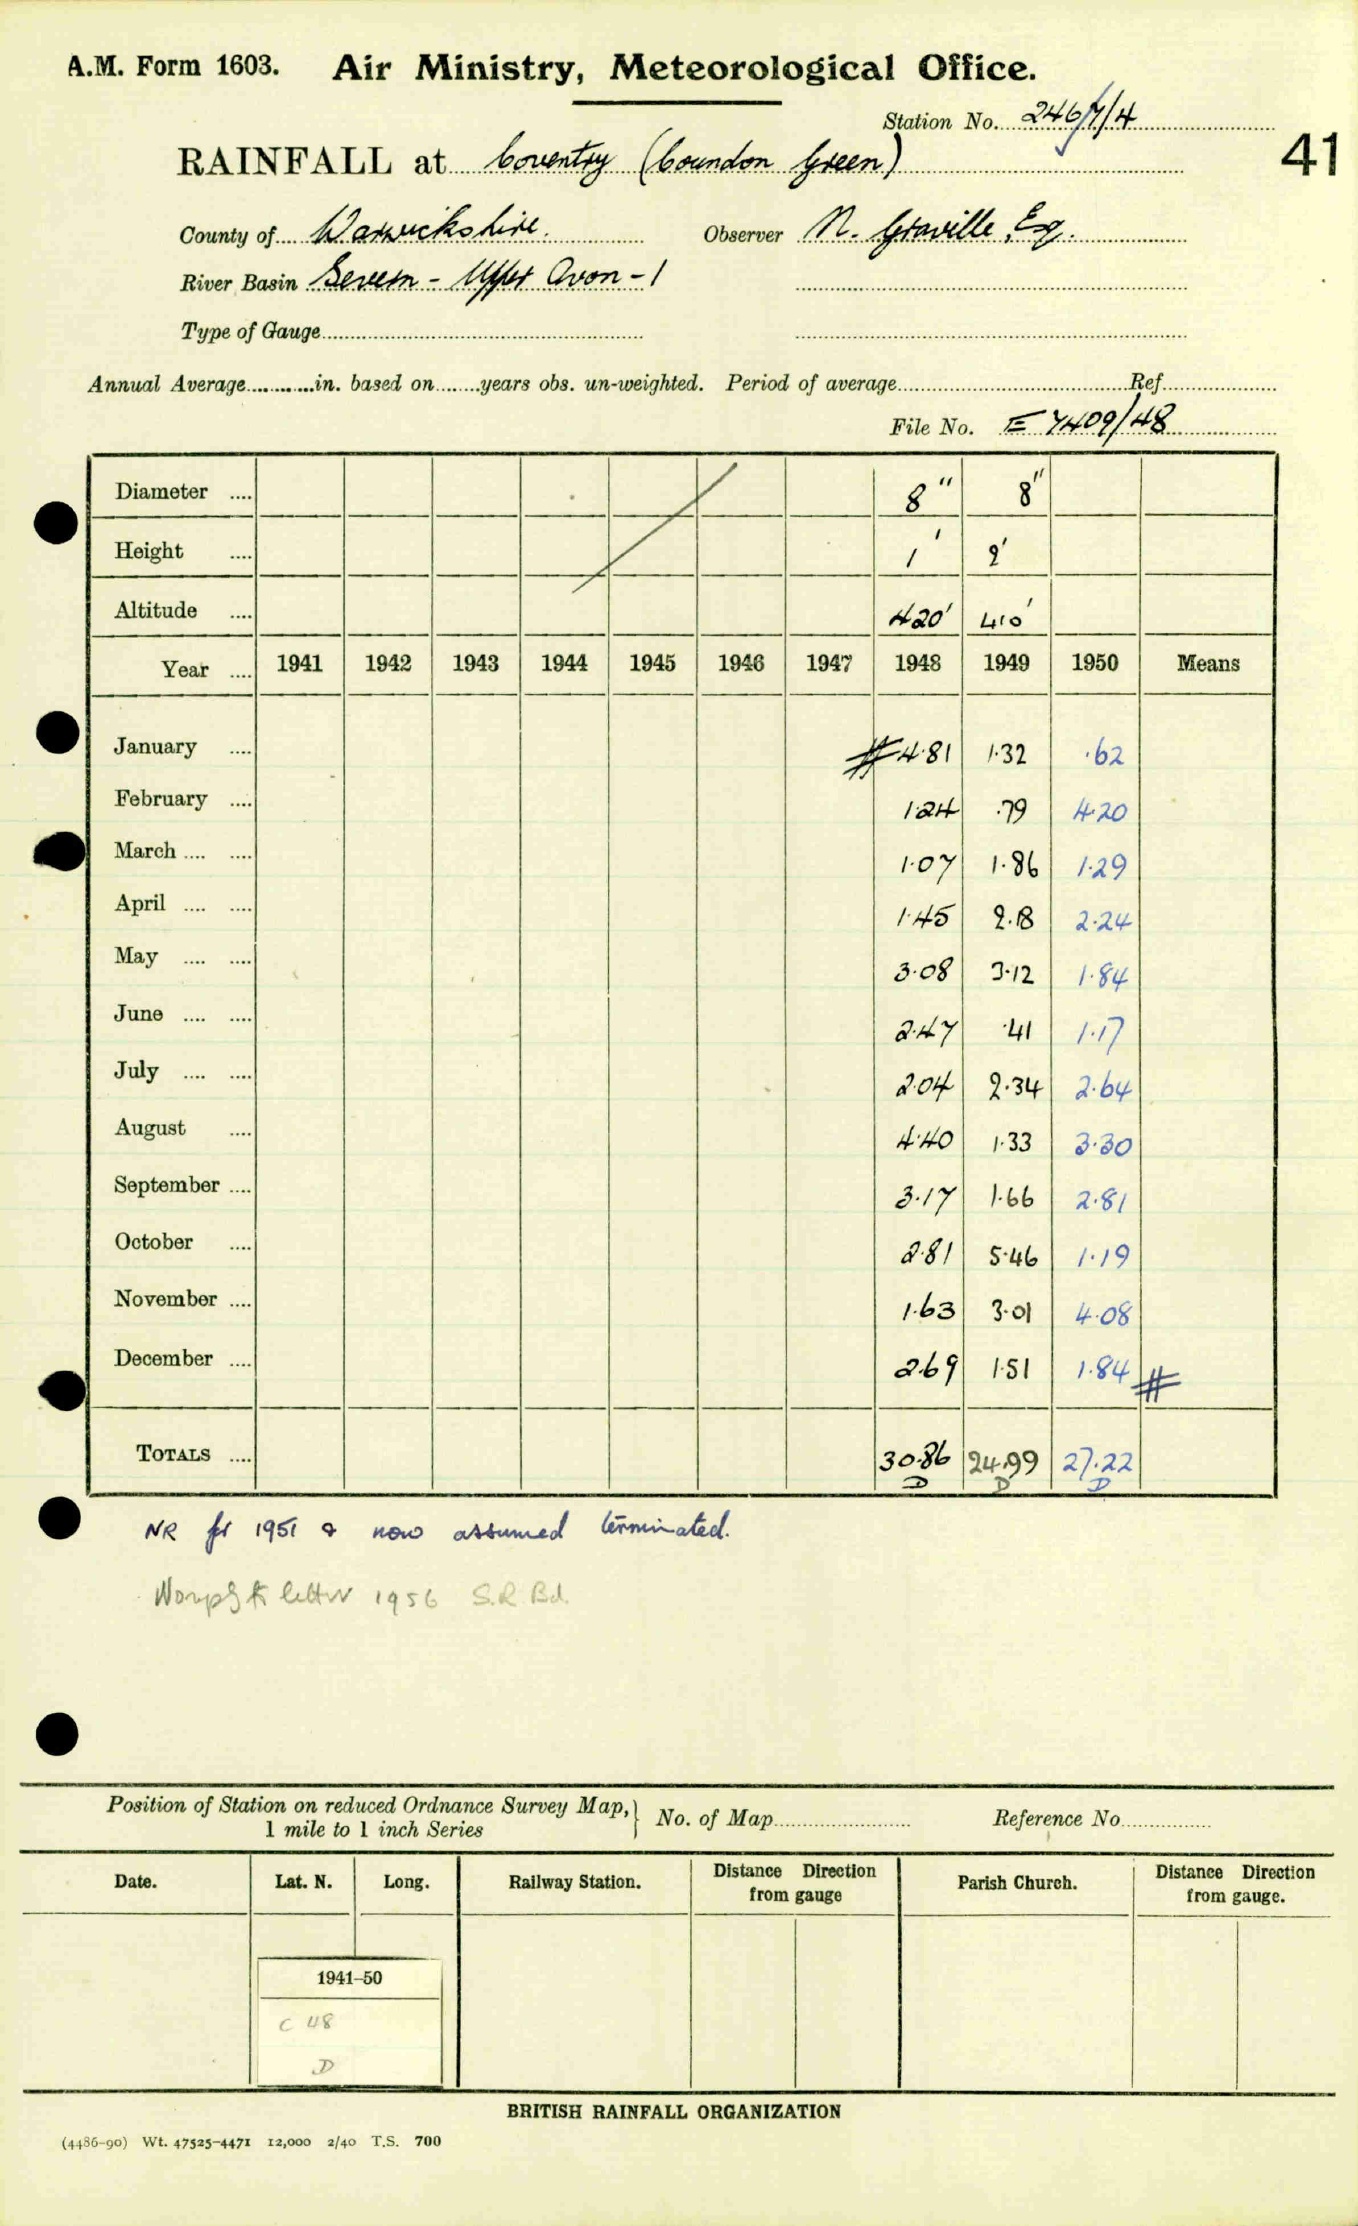 A.M. Form 1603. Air Ministry, Meteorological Office.
Station No. 2467/4
41
RAINFALL at Coventry (Coundon Green)
County of Warwickshire. Observer N. Graville, Esq.
River Basin Severn - Upper Avon - 1
Type of Gauge
Annual Average in. based on years obs. un-weighted. Period of average Ref.
File No. E 7409/48
Diameter .... 8" 8"
Height .... 1' 2'
Altitude .... 420' 410'
Year .... 1941 1942 1943 1944 1945 1946 1947 1948 1949 1950 Means
January .... # 4.81 1.32 .62
February .... 1.24 .79 4.20
March .... .... 1.07 1.86 1.29
April .... .... 1.45 2.18 2.24
May .... .... 3.08 3.12 1.84
June .... .... 2.47 .41 1.17
July .... .... 2.04 2.34 2.64
August .... 4.40 1.33 3.30
September .... 3.17 1.66 2.81
October .... 2.81 5.46 1.19
November .... 1.63 3.01 4.08
December .... 2.69 1.51 1.84 #
TOTALS .... 30.86 24.99 27.22
D D D
NR for 1951 & now assumed terminated.
letter 1956 S.R Bd.
Position of Station on reduced Ordnance Survey Map, } No. of Map Reference No.
1 mile to 1 inch Series
Date. Lat. N. Long. Railway Station. Distance Direction from gauge Parish Church. Distance Direction from gauge.
1941–50
C 48
D
BRITISH RAINFALL ORGANIZATION
(4486-90) Wt. 47525-4471 12,000 2/40 T.S. 700